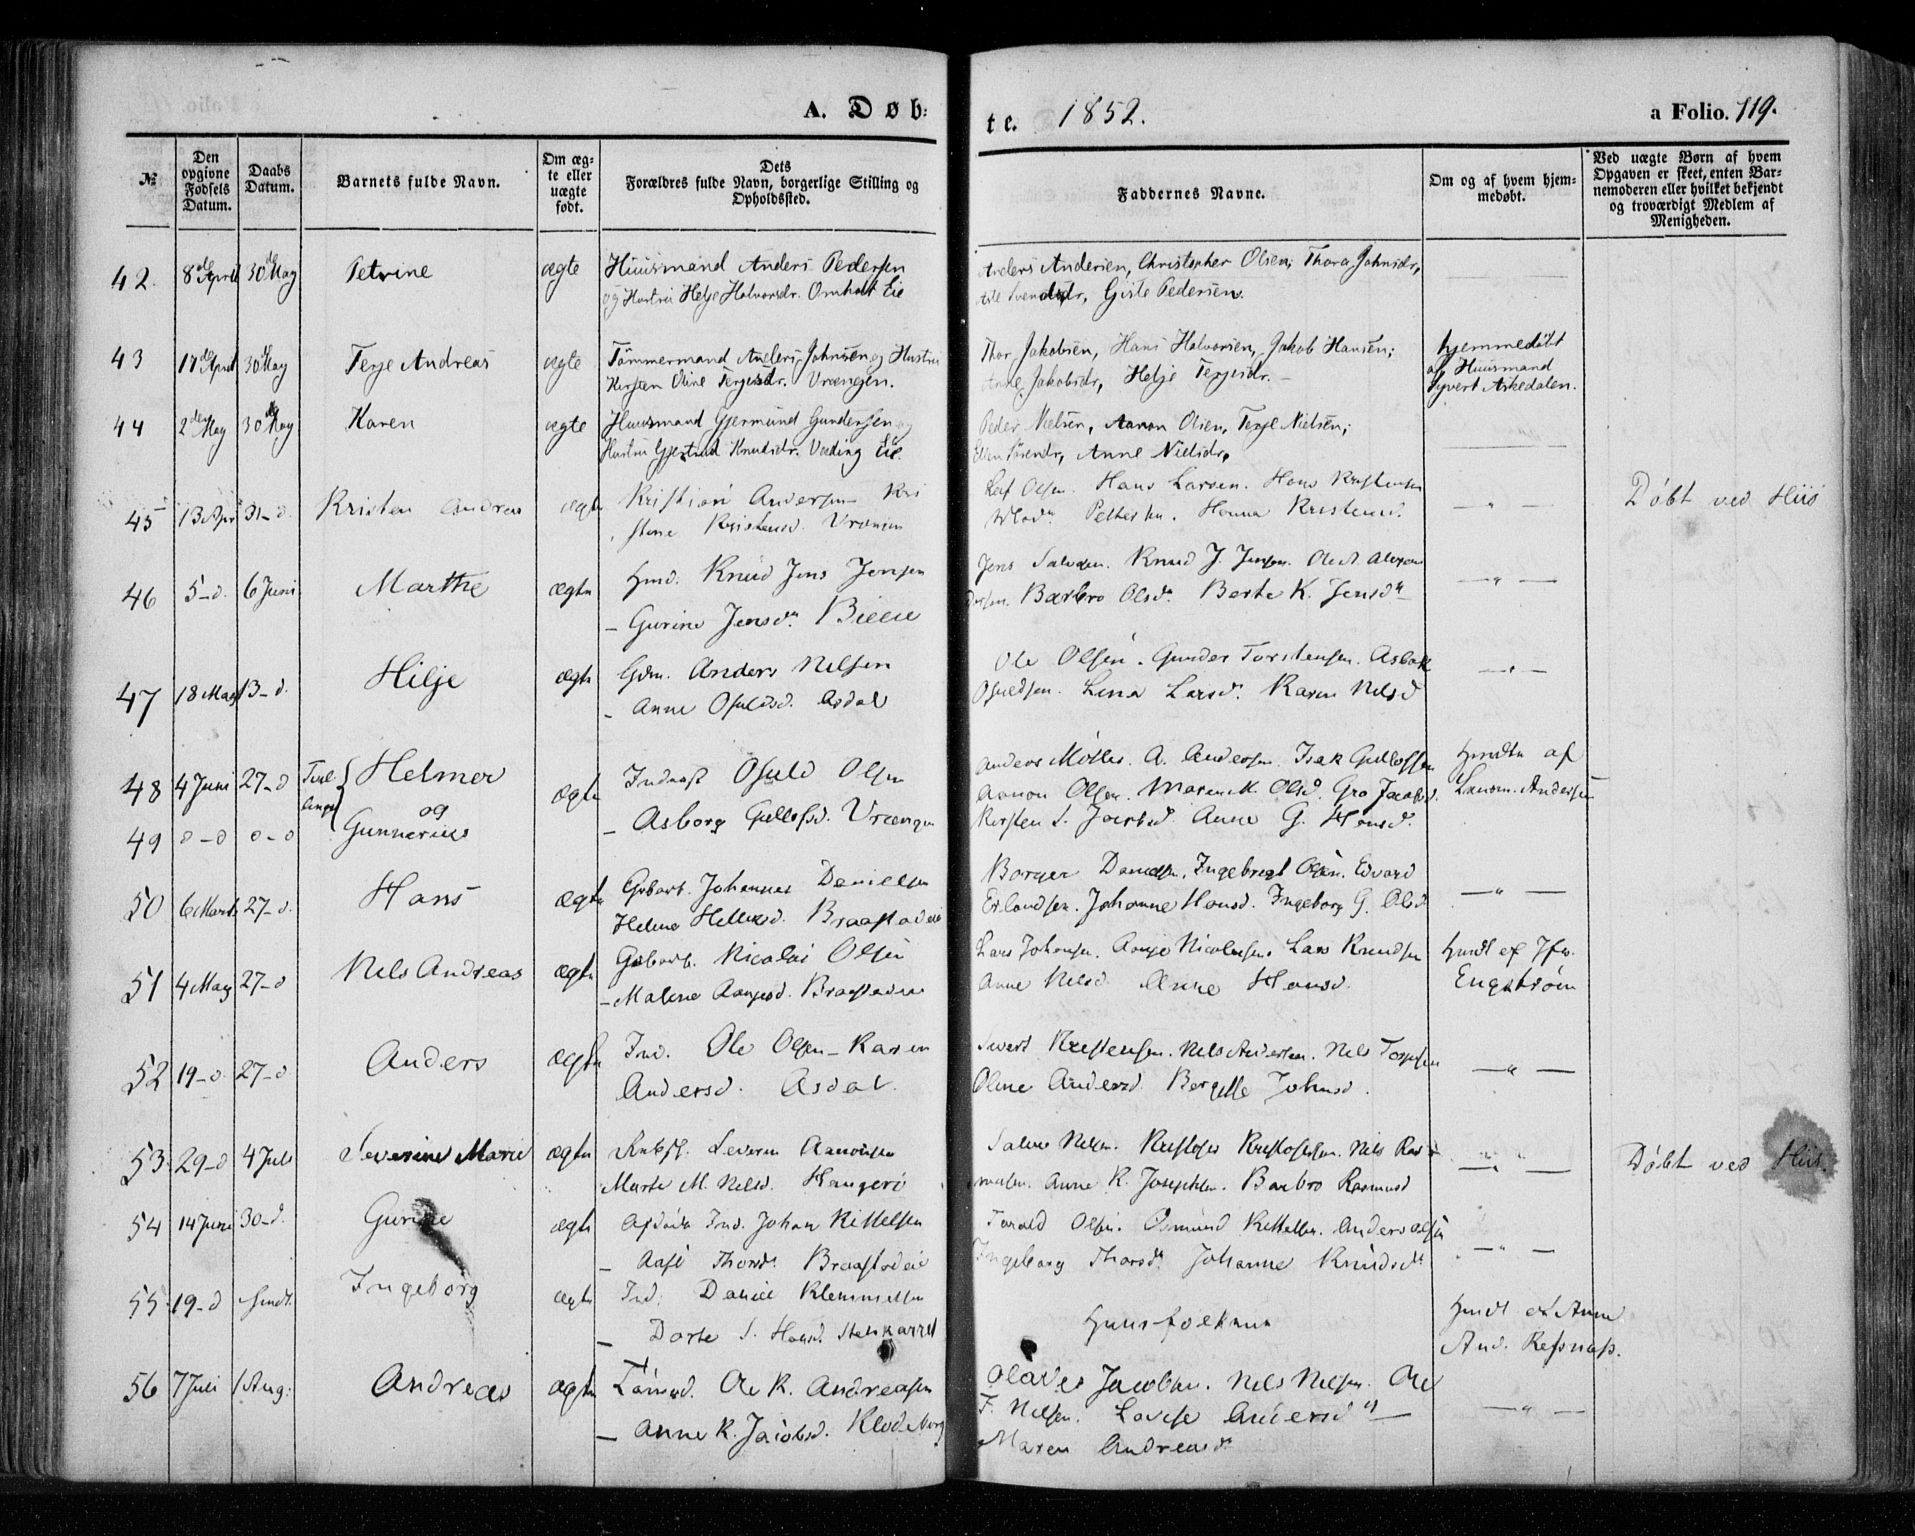 A. Døb:
te. 1852.
a Folio. 119.
№
Den opgivne Fødsels Datum.
Daabs Datum.
Barnets fulde Navn.
Om ægte eller uægte født.
Dets Forældres fulde Navn, borgerlige Stilling og Opholdssted.
Faddernes Navne.
Om og af hvem hjemmedøbt.
Ved uægte Børn af hvem Opgaven er skeet, enten Barnemoderen eller hvilket bekjendt og troværdigt Medlem af Menigheden.
42. 8de April 30de May Petrine ægte Huusmand Anders Pedersen
og Hustru Helje Halvorsdr. Omholt Eie
Anders Andersen, Christopher Olsen, Thora Johnsdr,
Svendsdr, Giste Pedersen.
43 17de April 30de May Terje Andreas ægte Tømmermand Anders Johnsen og Hustru
Kirsten Oline Terjesdr. Vrængen.
Thor Jakobsen, Hans Halvorsen, Jakob Hansen;
Anne Jakobsdr, Helje Terjesdr. -
hjemmedøbt
af Huusmand
Syvert Askedalen.
44 2den May 30de May Karen ægte Huusmand Gjermund Gundersen og
Hustru Gjertrud Knudsdr. Væding Eie.
Peder Nielsen, Aanon Olsen, Terje Nielsen;
Ellen Sørendr, Anne Nielsdr,
45 13 Apr 31-d. Kristen Andreas ægte Kristian Andersen Kri
stine Kristensd. Vrænen
Leif Olsen. Hans Larsen. Hans Kristensen
Hanna Kristensd.
— " —
Døbt ved Hiis
46 5-d. 6 Juni Marthe ægte Hmd. Knud Jens Jensen
- Gurine Jensdr. Bieeie
Jens Salvesen. Knud J. Jensen. Ole A. Alexan
dersen. Barbro Olsdr. Berte K. Jensdr
— " —
47 18 May 13-d. Hilje ægte Gdm. Anders Nilsen
- Anne Osuldsd. Asdal
Ole Olsen. Gunder Torstensen. Aslak
Osuldsen. Lena Larsd. Karen Nilsd
— " —
48 4 Juni 27-d Tvil-
linger { Helmer
og ægte Inderst Osuld Olsen
- Asborg Gullofsd. Vrængen
49 o-d o-o Gunnerius
Anders Møller. A. Andersen. Isak Gullofsen
Aanon Olsen. Maren K. Olsd. Gro Jacobsd.
Kirsten S. Anne G. Hansd.
Hmdbt af
Andersen
50 6 Marts 27-d. Hans ægte Gsbarb. Johannes Danielsen
Helene Helliksd. Braastadeie
Børger Danielsen. Ingebregt Olsen. Edvard
Erlandsen. Johanne Hansd. Ingeborg G. Olsd
— " —
51 4 May 27-d Nils Andreas ægte Gsbarb. Nicolai Olsen
- Malene Aanjesd. Braastadeie
Lars Johansen. Aanje Nicolaisen. Lars Knudsen
Anne Nilsd. Anne Hansd.
Hmdt af Jfr.
Engstrøm
52 19-d. 27-d. Anders ægte Ind. Ole Olsen - Karen
Andersd. Asdal.
Sivert Kristensen. Nils Andersen. Nils Torjesen
Oline Andersd Bergitte Johnsd.
— " —
53 29-d 4 Juli Severine Marie ægte Severin Aanonsen
Marte M. Nilsd. Havgerö
Salve Nilsen. Kristofer Kristofersen. Nils Ras-
musen. Anne K. Josephsen. Barbro Rasmusd
— " —
Døbt ved Hiis.
54 14 Juni 30-d. Gurine ægte Ind. Johan Kittelsen
- Aase Thorsdr Braastadeie
Torald Olsen. Osmund Kittelsen. Anders Olsen
Ingeborg Thorsdr Johanne Knudsdr
— " —
55 19-d Hmdt. Ingeborg ægte Ind. Daniel Klemmetsen
- Dorte S. Hansd.
Huusfolkene
Hmdt af Anne
And. Refsnæss.
56 7 Juli 1 Aug: Andreas ægte Tømmd. Ole K. Andreasen
- Anne K. Jacobsd. Kloderborg
Olaves Jacobsen. Nils Nilsen. Ole
F. Nilsen. Lovise Andersdr —
Maren Andreasdr
— " —